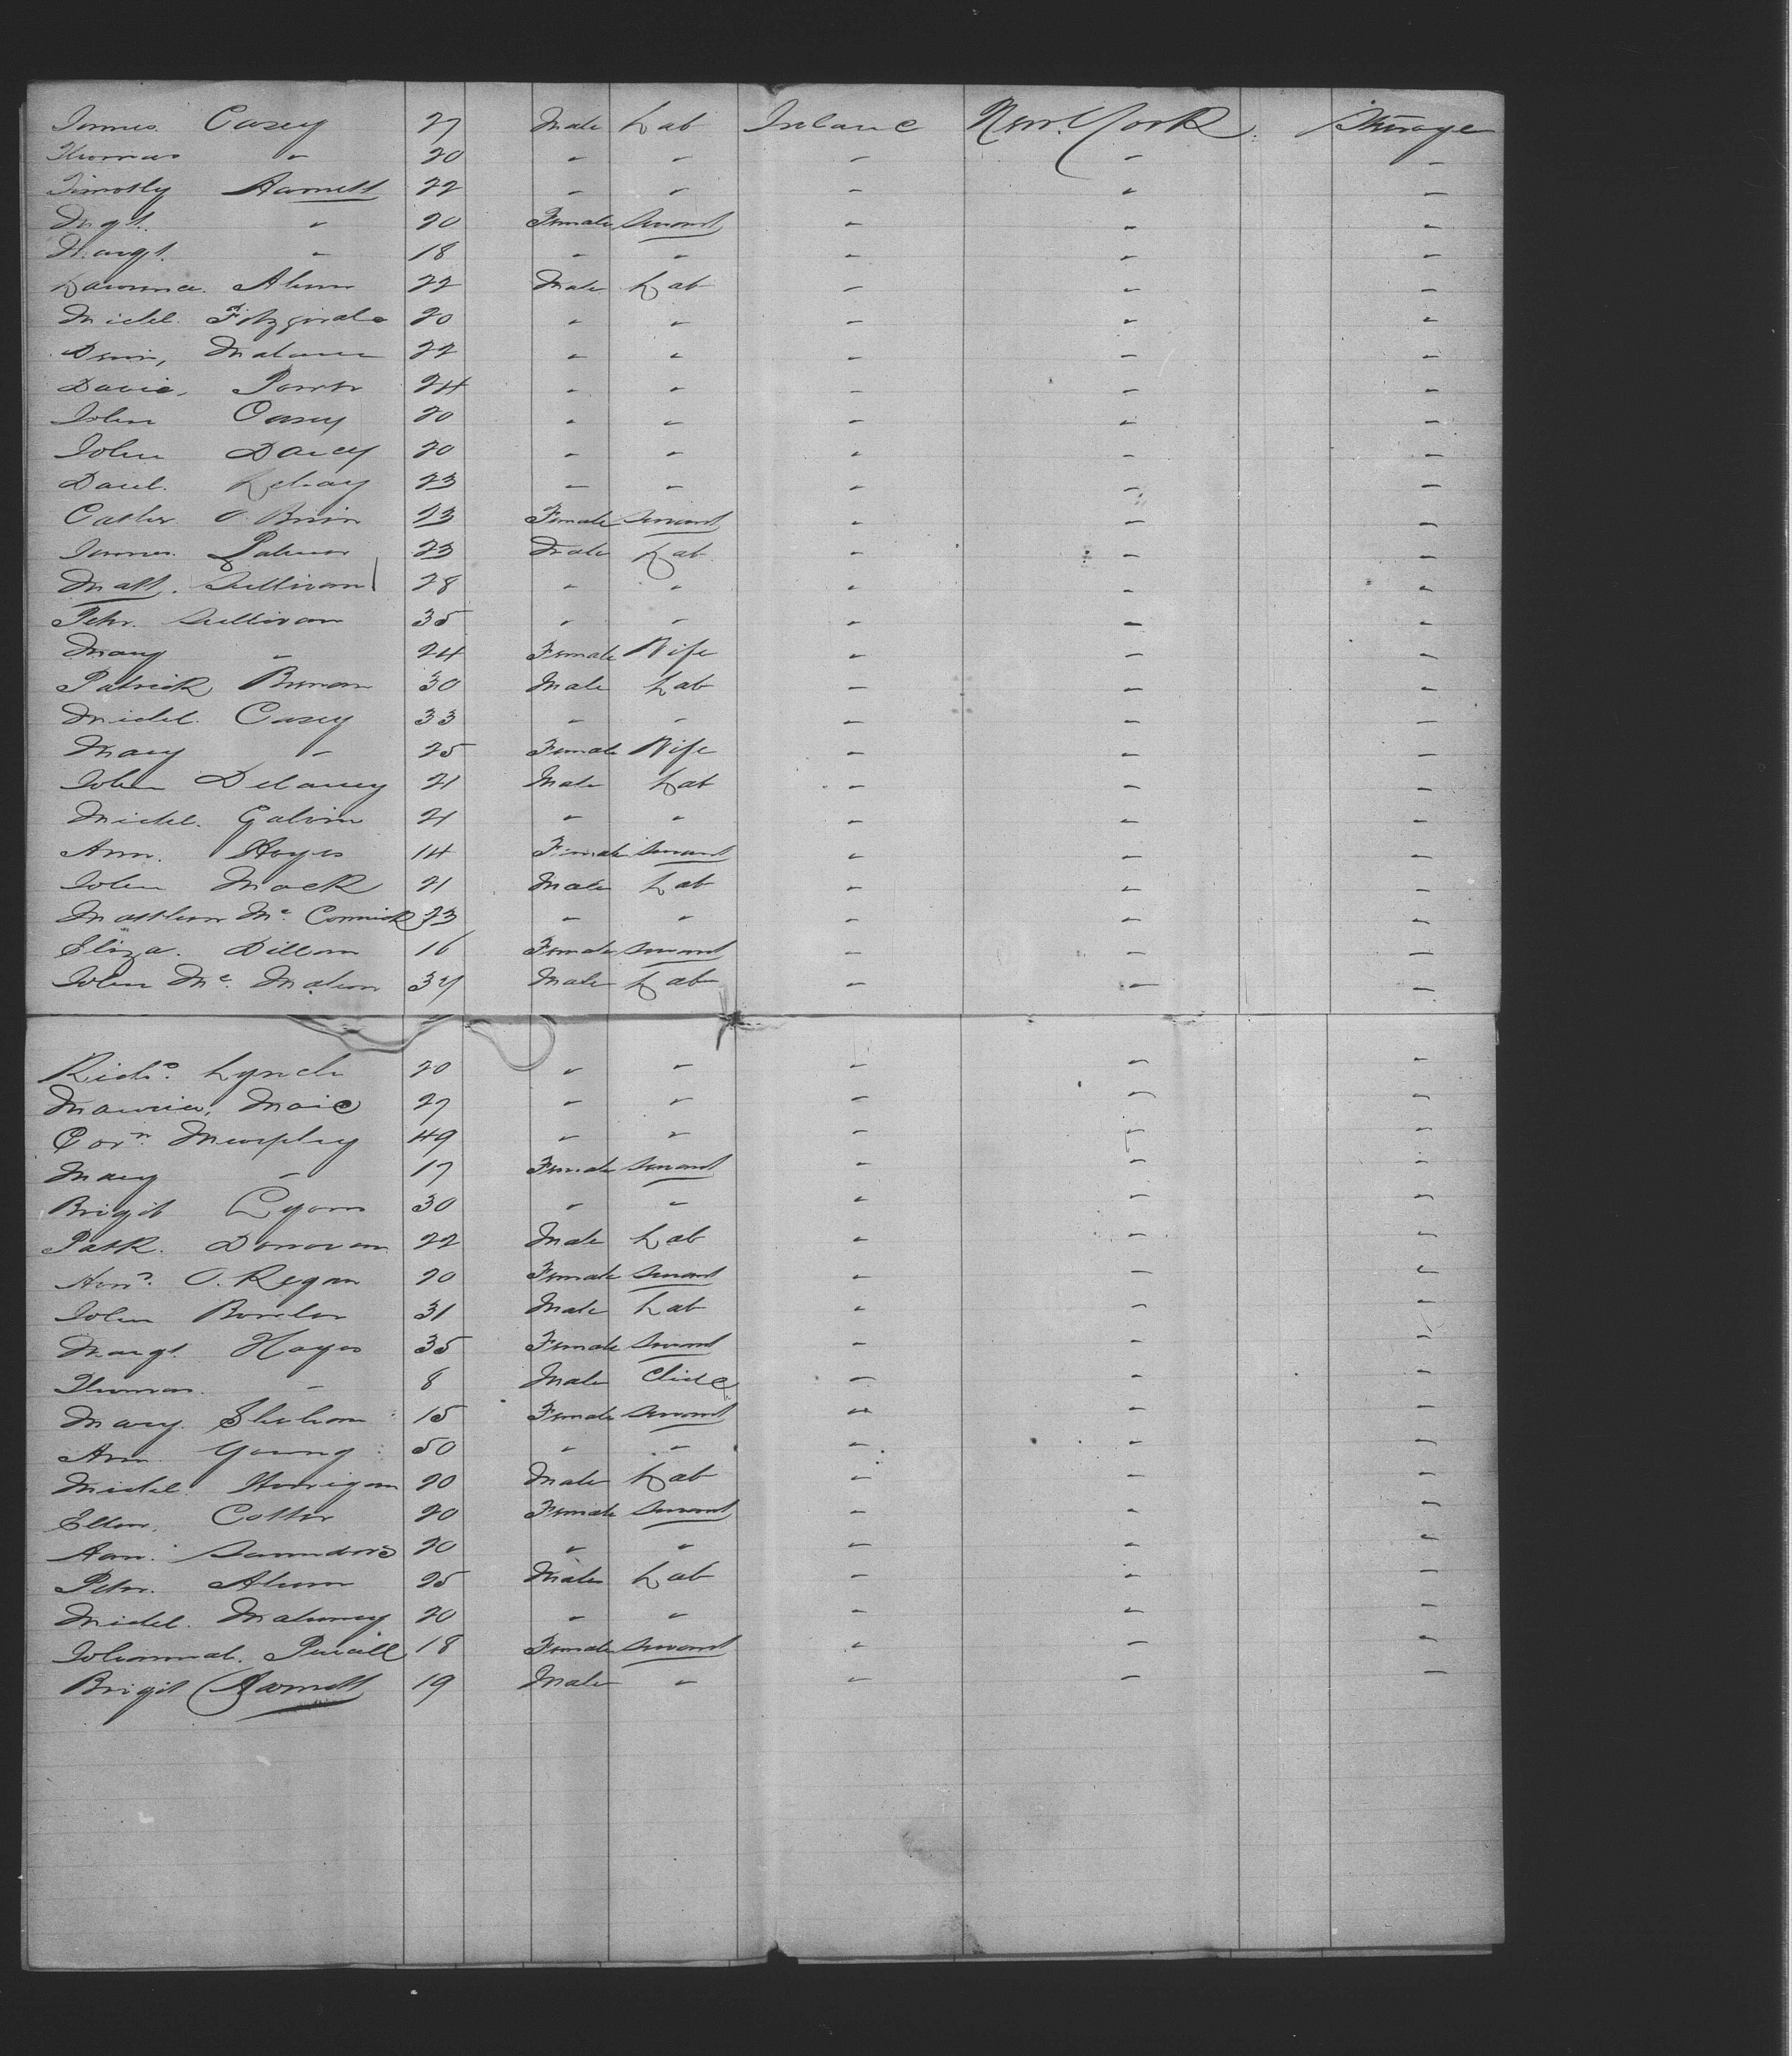 James Casey 27 Male Lab Ireland New York Steerage
Thomas " 20 " " " " "
Timothy Harnett 22 " " " " "
Mgt. " 20 Female Servant " " "
Margt. " 18 " " " " "
Lawrence Ahern 22 Male Lab " " "
Michl. Fitzgerald 20 " " " " "
Denis, Malone 22 " " " " "
David, Power 24 " " " " "
John Casey 20 " " " " "
John Darcy 20 " " " " "
Danl. 23 " " " " "
Cather O'Brien 23 Female Servant " " "
James 23 Male Lab " " "
Matt. Sullivan 28 " " " " "
Peter Sullivan 35 " " " " "
Mary " 24 Female Wife " " "
Patrick Brenan 30 Male Lab " " "
Michl. Casey 33 " " " " "
Mary " 25 Female Wife " " "
John Delaney 21 Male Lab " " "
Michl. Galvin 21 " " " " "
Ann. Hayes 14 Female Servant " " "
John Mack 21 Male Lab " " "
Matthew Mc. Cormick 23 " " " " "
Eliza. Dillon 16 Female Servant " " "
John Mc. Mahon 34 Male Lab " " "
Richd. Lynch 20 " " " " "
Maurice, 27 " " " " "
Corn. Murphy 49 " " " " "
Mary " 17 Female Servant " " "
Brigit Lyons 30 " " " " "
Patk. Donovan 22 Male Lab " " "
Hona. O. Regan 20 Female Servant " " "
John 31 Male Lab " " "
Margt. Hayes 35 Female Servant " " "
Thomas. " 8 Male Child " " "
Mary. Shehan 15 Female Servant " " "
Ann. Young 50 " " " " "
Michl. Horrigan 20 Male Lab " " "
Ellen. Cotter 20 Female Servant " " "
Han. Saunders 20 " " " " "
Peter. Ahern 25 Male Lab " " "
Michl. Mahoney 20 " " " " "
Johannah. Purcell 18 Female Servant " " "
Brigit Harnett 19 Male " " " "